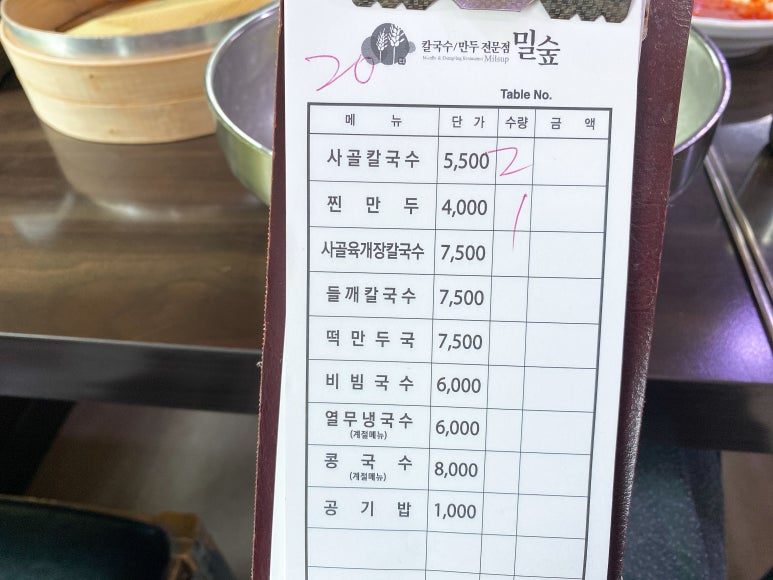 칼국수/만두 전문점 밀숲
Noodle & Dumpling Restaurant Milsup
20
Table No.
메 뉴 단 가 수량 금 액
사골칼국수 5,500 2
찐만두 4,000 1
사골육개장칼국수 7,500
들깨칼국수 7,500
떡만두국 7,500
비빔국수 6,000
열무냉국수 6,000
(계절메뉴)
콩국수 8,000
(계절메뉴)
공기밥 1,000